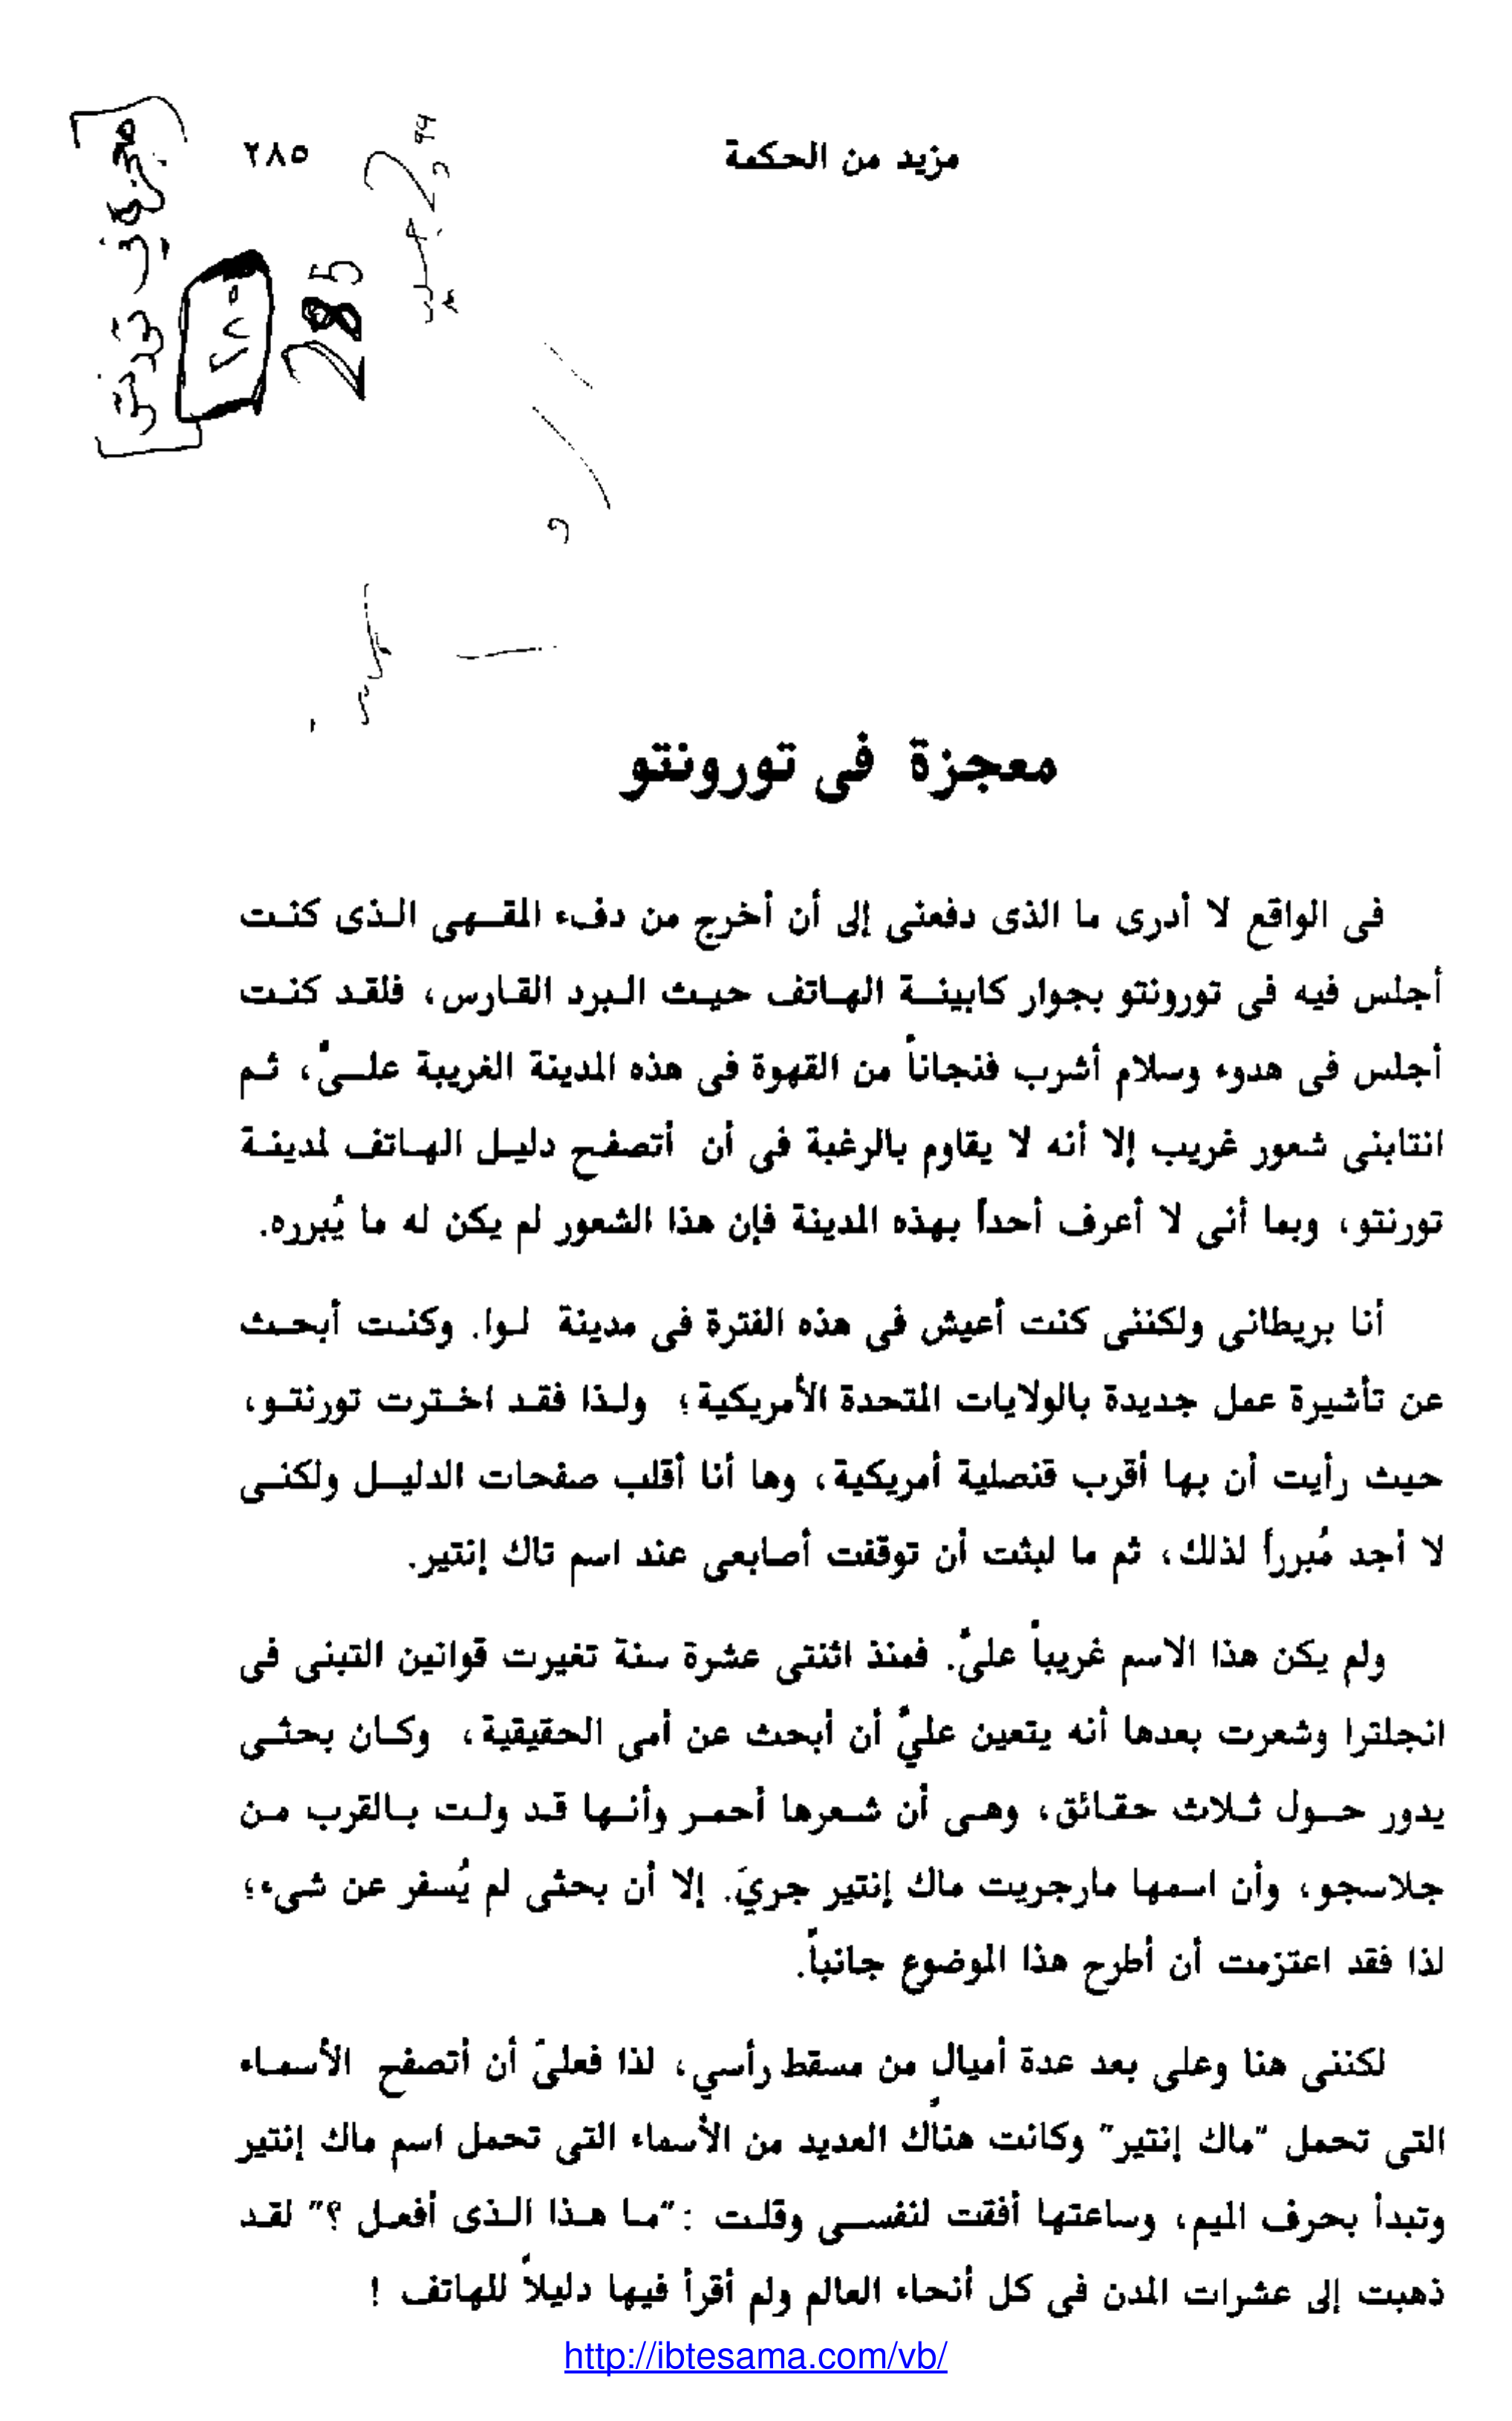 مزيد من الحكمة
٢٨٥
٢٨٥
285
معجزة فى تورونتو
فى الواقع لا أدرى ما الذى دفعنى إلى أن أخرج من دفء المقهى الذى كنت
أجلس فيه فى تورونتو بجوار كابينة الهاتف حيث البرد القارس، فلقد كنت
أجلس فى هدوء وسلام أشرب فنجاناً من القهوة فى هذه المدينة الغريبة علىّ، ثم
انتابنى شعور غريب إلا أنه لا يقاوم بالرغبة فى أن أتصفح دليل الهاتف لمدينة
تورنتو، وبما أنى لا أعرف أحداً بهذه المدينة فإن هذا الشعور لم يكن له ما يُبرره.
أنا بريطانى ولكننى كنت أعيش فى هذه الفترة فى مدينة لوا. وكنت أبحث
عن تأشيرة عمل جديدة بالولايات المتحدة الأمريكية؛ ولذا فقد اخترت تورنتو،
حيث رأيت أن بها أقرب قنصلية أمريكية، وها أنا أقلب صفحات الدليل ولكنى
لا أجد مُبرراً لذلك، ثم ما لبثت أن توقفت أصابعى عند اسم تاك إنتير.
ولم يكن هذا الاسم غريباً علىّ. فمنذ اثنتى عشرة سنة تغيرت قوانين التبنى فى
انجلترا وشعرت بعدها أنه يتعين عليّ أن أبحث عن أمى الحقيقية، وكان بحثى
يدور حول ثلاث حقائق، وهى أن شعرها أحمر وأنها قد ولت بالقرب من
جلاسجو، وأن اسمها مارجريت ماك إنتير جريَ. إلا أن بحثى لم يُسفر عن شىء؛
لذا فقد اعتزمت أن أطرح هذا الموضوع جانباً.
لكننى هنا وعلى بعد عدة أميال من مسقط رأسي، لذا فعلىّ أن أتصفح الأسماء
التى تحمل "ماك إنتير" وكانت هناك العديد من الأسماء التى تحمل اسم ماك إنتير
وتبدأ بحرف الميم، وساعتها أفقت لنفسى وقلت :"ما هذا الذى أفعل ؟" لقد
ذهبت إلى عشرات المدن فى كل أنحاء العالم ولم أقرأ فيها دليلاً للهاتف !
http://ibtesama.com/vb/